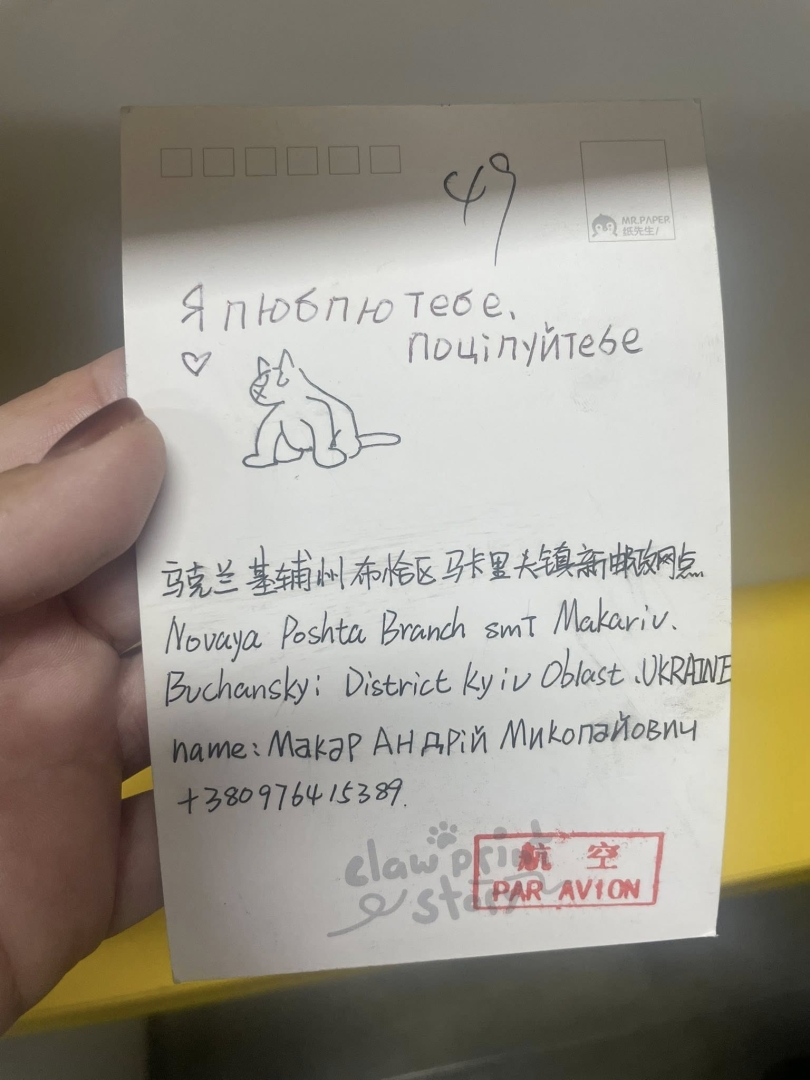 49
MR.PAPER
纸先生!
Я пюбпю тебе,
поціпуйтебе
乌克兰 基辅州布恰区马卡里夫镇新邮政网点
Novaya Poshta Branch smT Makariv.
Buchanskyi District Kyiv Oblast .UKRAINE
name: Макар АНдрій Микопайович
+380976415389.
claw print
story
航空
PAR AVION